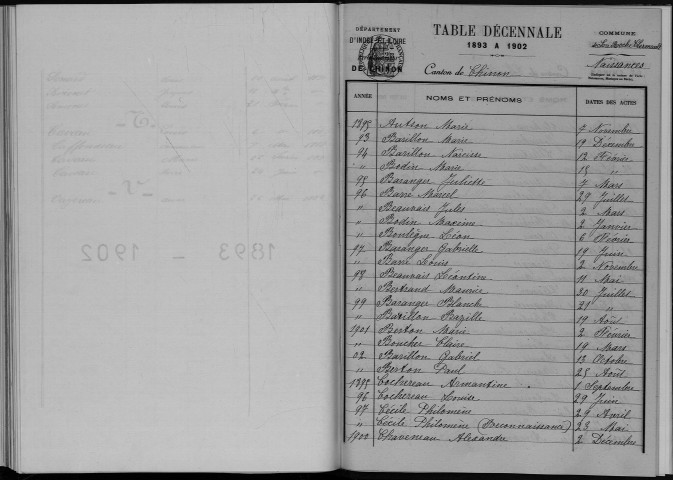 DÉPARTEMENT
D'INDRE-ET-LOIRE
DE CHINON
TABLE DÉCENNALE
1893 A 1902
Canton de Chinon
COMMUNE
Naissances
ANNÉE NOMS ET PRÉNOMS DATES DES ACTES
1895 Autson Marie 9 Novembre
93 Barillon Marie 19 Décembre
94 Barillon Narcisse 12 Février
" Bodin Marie 18 "
95 Baranger Juliette 7 Mars
96 Barré Marcel 29 Juillet
" Beauvais Jules 2 Mars
" Bodin Maxime 2 Janvier
" Léon 6 Février
97 Baranger Gabrielle 19 Juin
" Barré Louis 2 Novembre
98 Beauvais Léontine 11 Mai
" Bertrand Maurice 30 Juillet
99 Baranger Blanche 21 "
" Barillon Bazille 19 Août
1901 Berton Marie 2 Février
" Boucher Claire 19 Mars
02 Barillon Gabriel 13 Octobre
" Berton Paul 25 Août
1895 Cochereau Armantine 1 Septembre
96 Cochereau Louise 29 Juin
97 Cécile Philomène 29 Avril
" Cécile Philomène (Reconnaissance) 23 Mai
1900 Chaveneau Alexandre 2 Décembre
1893 – 1902